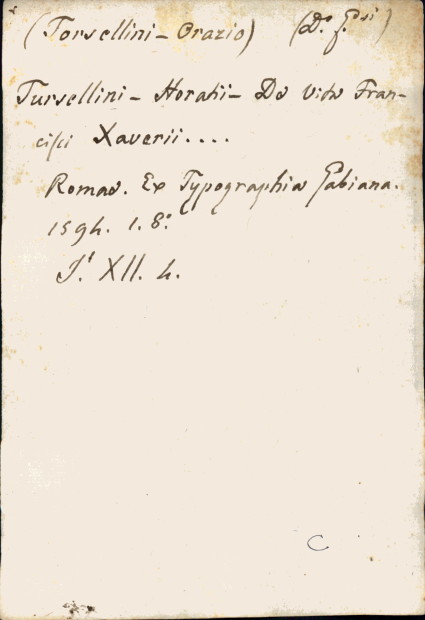 (Torsellini - Orazio) (D.º G.sù)
Tursellini - Horatii - De Vita Fran-
cisci Xaverii....
Romae. Ex Typographia Gabiana.
1594. 1. 8.º
XII. 4.
C